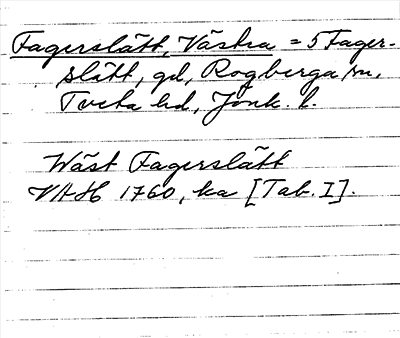 Fagerslätt, Västra = 5 Fager-
slätt, gd, Rogberga sn,
Tveta hd, Jönk. l.
Wäst Fagerslätt
VAH 1760, ka [Tab. I].